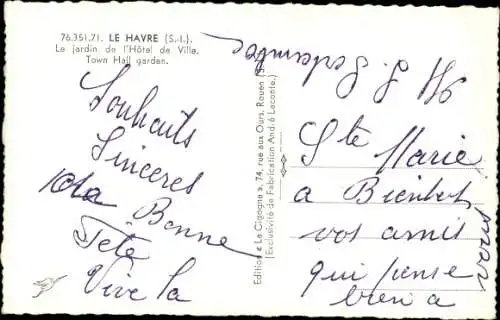 76.351.71. LE HAVRE (S.-I.).
Le jardin de l'Hôtel de Ville.
Town Hall garden.
Souhaits
Sinceres
Bonne
Fête
Vive la
Edition « La Cigogne », 74, rue aux Ours, Rouen
(Exclusivité de Fabrication André Leconte.)
Septembre
Ste Marie
a Bientot
vos amis
qui pense
bien a
vous